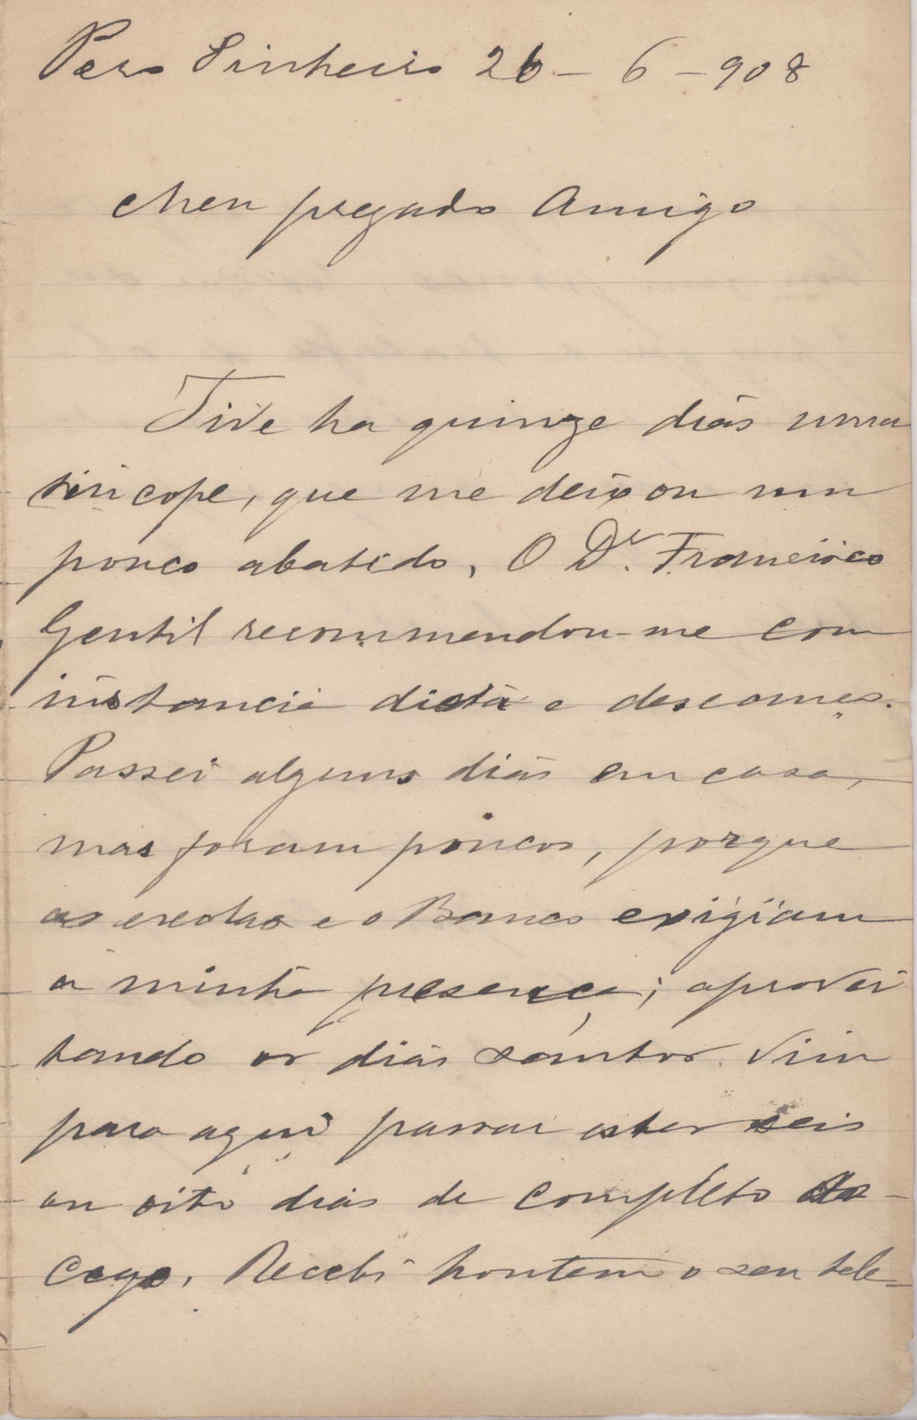 Pero Pinheiro 26-6-908
Meu presado Amigo
Tive ha quinze dias uma
sincope, que me deixou um
pouco abatido. O Dr. Francisco
Gentil recommendou-me com
instancia dieta e descanço.
Passei alguns dias em casa,
mas foram poucos, porque
as escolas e o Banco exigiam
a minha presença; aprovei
tando os dias santos vim
para aqui passar estes seis
ou oito dias de completo so-
cego. Recebi hontem o seu tele-